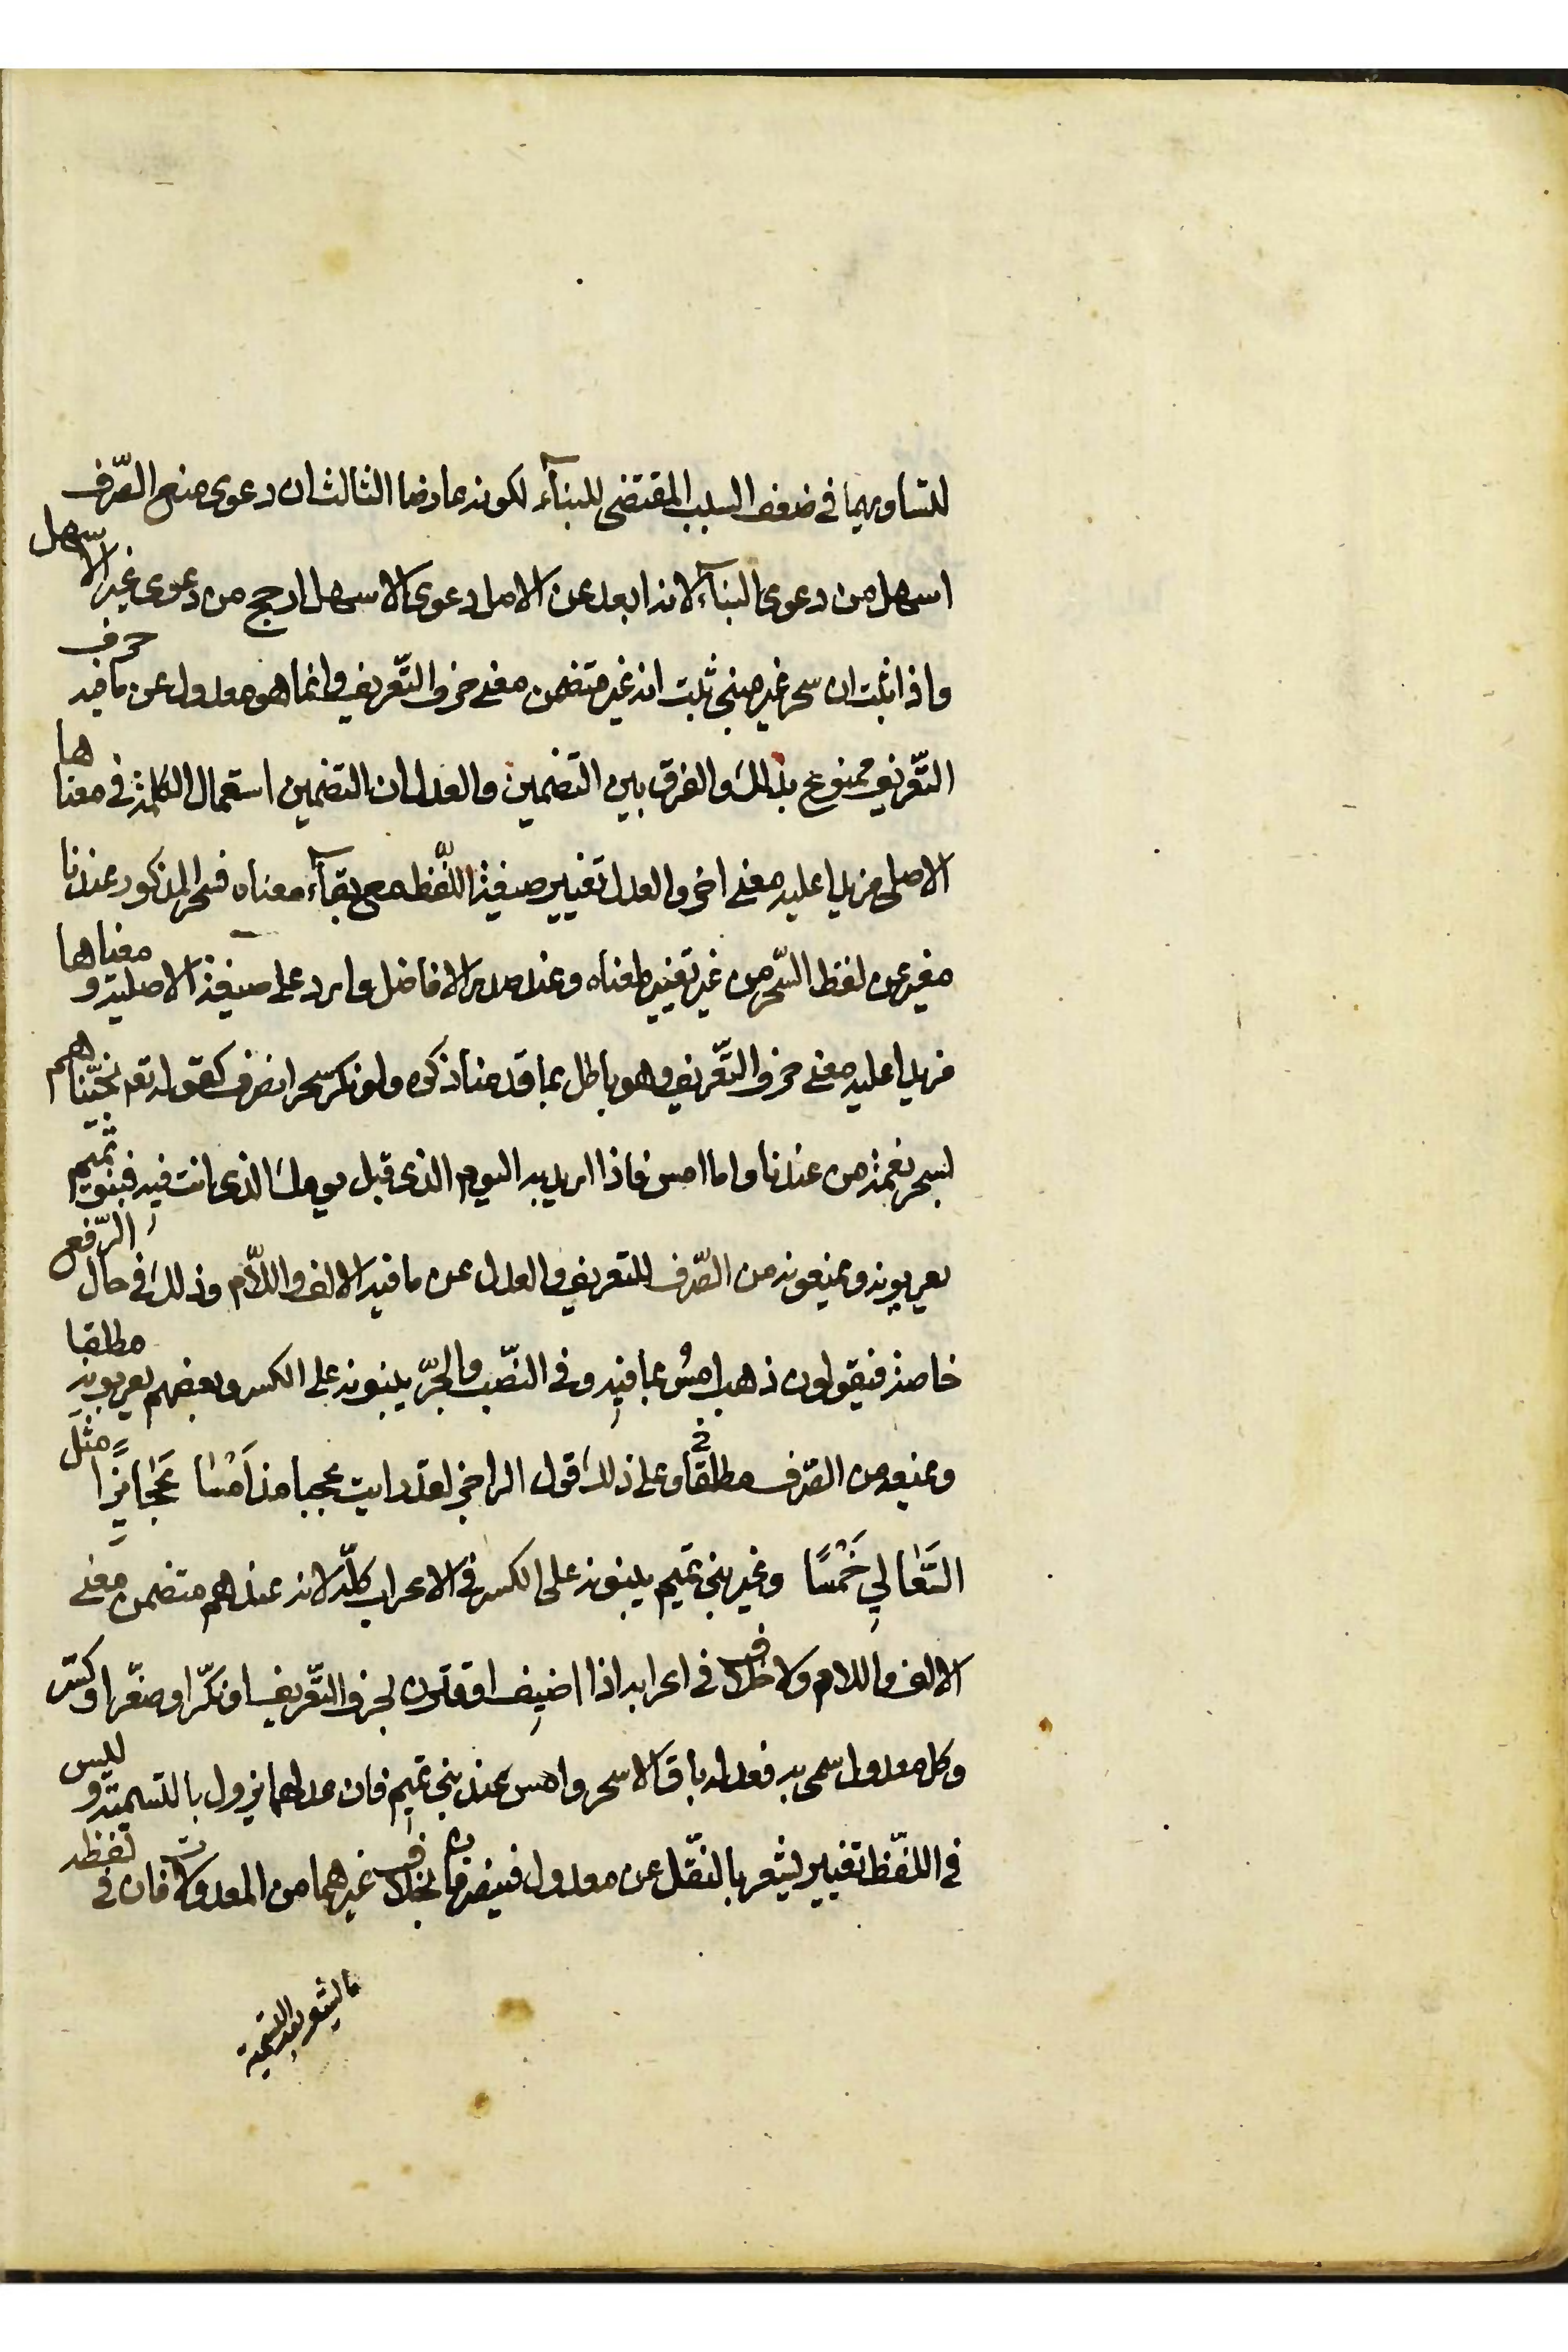 لتساويهما في ضعف السبب المقتضى للبنآء لكونه عارضا الثالث ان دعوى منع الصّرف
اسهل من دعوى البنآء لانه ابعد عن الاصل ودعوى الاسهل ارجح من دعوى غير الاسهل
واذا ثبت ان سحر غير مبني ثبت انه غير متضمن معنى حرف التّعريف وانما هو معدول عن ما فيه حرف
التّعريف ممنوع بذلك والفرق بين التضمين والعدل ان التضمين استعمال الكلمة في معناها
الاصلي مزيدا عليه معنى اخر والعدل تغيير صيغة اللّفظ مع بقآء معناه فسحر المذكور عندنا
مغير عن لفظ السّحر من غير تغيير لمعناه وعند صدر الافاضل وارد على صيغة الاصلية ومعناها
مزيدا عليه معنى حرف التّعريف وهو باطل بما قدمنا ذكره ولو نكر سحر انصرف كقوله تعم نجّيناهم
بسحر نعمة من عندنا واما امس فاذا اريد به اليوم الذي قبل يومك الذي انت فيه فبنو تميم
يعربونه ويمنعونه من الصّرف للتعريف والعدل عن ما فيه الالف واللّام وذلك في حال الرّفع
خاصة فيقولون ذهب امسُ بما فيهِ وفي النّصب والجرّ يبنونه على الكسر وبعضهم يعربونه مطلقا
ويمنعه من الصّرف مطلقا وعلى ذلك قول الراجز لقد رايت عجبا مذ اَمْسَا عَجَائِزًا مثلَ
السَّعَالِي خَمْسًا وغير بني تميم يبنونه على الكسر في الاعراب كلّه لانه عندهم متضمن معنى
الالف واللام ولا خلاف في اعرابه اذا اضيف او قترن بحرف التّعريف او نكّر او صغّر او كسّر
وكل معدول سمى به فعدله باق الا سحر وامس عند بني تميم فان عدلهما يزول بالتسمية وليس
في اللّفظ تغيير يشعر بالنّقل عن معدول فينصرفان بخلاف غيرهما من المعدولات فان في لفظه
ما يشعر بعد التسمية